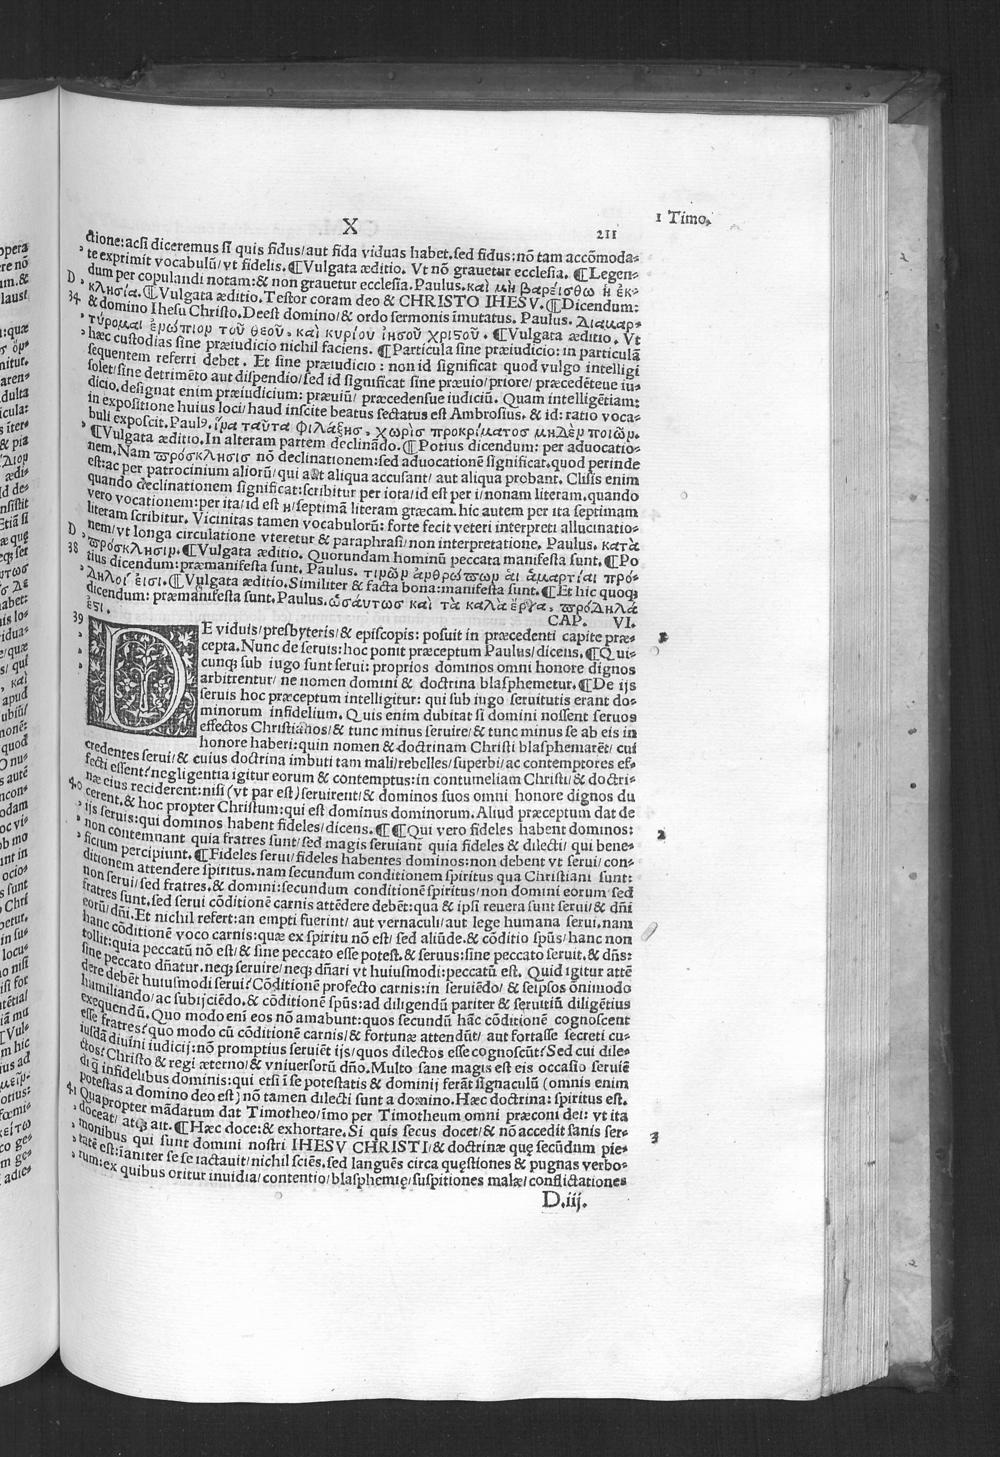 X
211
1 Timo.
ctione: acsi diceremus si quis fidus/aut fida viduas habet. sed fidus: nõ tam accõmoda-
te exprimit vocabulũ/vt fidelis. ¶Vulgata æditio. Vt nõ grauetur ecclesia. ¶Legen-
dum per copulandi notam: & non grauetur ecclesia. Paulus. καὶ μὴ βαρείσθω ἡ ἐκ-
D κλησία. ¶Vulgata æditio. Testor coram deo & CHRISTO IHESV. ¶Dicendum:
34 & domino Ihesu Christo. Deest domino/& ordo sermonis ĩmutatus. Paulus. Διαμαρ-
τύρομαι ἐνώπιον τοῦ θεοῦ. καὶ κυρίου ἰησοῦ χριστοῦ. ¶Vulgata æditio. Vt
hæc custodias sine præiudicio nichil faciens. ¶Particula sine præiudicio: in particulã
sequentem referri debet. Et sine præiudicio: non id significat quod vulgo intelligi
solet/sine detrimẽto aut dispendio/sed id significat sine præuio/priore/præcedẽteue iu-
dicio. designat enim præiudicium: præuiũ/præcedensue iudiciũ. Quam intelligẽtiam:
in expositione huius loci/haud inscite beatus sectatus est Ambrosius. & id: ratio voca-
buli exposcit. Paulꝰ. ἵνα ταῦτα φιλάξησ, χωρὶσ προκρίματοσ μηδὲν ποιῶν.
¶Vulgata æditio. In alteram partem declinãdo. ¶Potius dicendum: per aduocatio-
nem. Nam πρόσκλησισ nõ declinationem: sed aduocationẽ significat. quod perinde
est: ac per patrocinium aliorũ/qui aut aliqua accusant/aut aliqua probant. Clisis enim
quando declinationem significat: scribitur per iota/id est per i/nonam literam. quando
vero vocationem: per ita/id est η/septimã literam græcam. hic autem per ita septimam
literam scribitur. Vicinitas tamen vocabulorũ: forte fecit veteri interpreti allucinatio-
D nem/vt longa circulatione vteretur & paraphrasi/non interpretatione. Paulus. κατὰ
38 πρόσκλησιν. ¶Vulgata æditio. Quorundam hominũ peccata manifesta sunt. ¶Po
tius dicendum: præmanifesta sunt. Paulus. τινῶν ἀνθρώπων ἁι ἁμαρτίαι πρό-
δηλοί ἐισι. ¶Vulgata æditio. Similiter & facta bona: manifesta sunt. ¶Et hic quoqꝫ
dicendum: præmanifesta sunt. Paulus. ὡσάυτωσ καὶ τὰ καλὰ ἔργα, πρόδηλά
ἐστι. CAP. VI.
39 DE viduis/presbyteris/& episcopis: posuit in præcedenti capite præ- 1
cepta. Nunc de seruis: hoc ponit præceptum Paulus/dicens. ¶Qui-
cunqꝫ sub iugo sunt serui: proprios dominos omni honore dignos
arbitrentur/ne nomen domini & doctrina blasphemetur. ¶De ijs
seruis hoc præceptum intelligitur: qui sub iugo seruitutis erant do-
minorum infidelium. Quis enim dubitat si domini nossent seruos
effectos Christianos/& tunc minus seruire/& tunc minus se ab eis in
honore haberi: quin nomen & doctrinam Christi blasphemarẽt/cui
credentes serui/& cuius doctrina imbuti tam mali/rebelles/superbi/ac contemptores ef-
fecti essent? negligentia igitur eorum & contemptus: in contumeliam Christi/& doctri-
næ eius reciderent: nisi (vt par est) seruirent/& dominos suos omni honore dignos du
40 cerent. & hoc propter Christum: qui est dominus dominorum. Aliud præceptum dat de
ijs seruis: qui dominos habent fideles/dicens. ¶¶Qui vero fideles habent dominos: 2
non contemnant quia fratres sunt/sed magis seruiant quia fideles & dilecti/qui bene-
ficium percipiunt. ¶Fideles serui/fideles habentes dominos: non debent vt serui/con-
ditionem attendere spiritus. nam secundum conditionem spiritus qua Christiani sunt:
non serui/sed fratres. & domini: secundum conditionẽ spiritus/non domini eorum sed
fratres sunt. sed serui cõditionẽ carnis attẽdere debẽt: qua & ipsi reuera sunt serui/& dñi
eorũ/dñi. Et nichil refert: an empti fuerint/aut vernaculi/aut lege humana serui. nam
hanc cõditionẽ voco carnis: quæ ex spiritu nõ est/sed aliũde. & cõditio spũs/hanc non
tollit: quia peccatũ nõ est/& sine peccato esse potest. & seruus: sine peccato seruit. & dñs:
sine peccato dñatur. neqꝫ seruire/neqꝫ dñari vt huiusmodi: peccatũ est. Quid igitur attẽ
dere debẽt huiusmodi serui? Cõditionẽ profecto carnis: in seruiẽdo/& seipsos onĩmodo
humiliando/ac subijciẽdo. & cõditionẽ spũs: ad diligendũ pariter & seruitiũ diligẽtius
exequendũ. Quo modo eni eos nõ amabunt: quos secundũ hãc cõditionẽ cognoscent
esse fratres? quo modo cũ cõditionẽ carnis/& fortunæ attendũt/aut fortasse secreti cu-
iusdã diuini iudicij: nõ promptius seruiẽt ijs/quos dilectos esse cognoscũt? Sed cui dile-
ctos? Christo & regi æterno/& vniuersorũ dño. Multo sane magis est eis occasio seruiẽ
di q̃ infidelibus dominis: qui etsi ĩ se potestatis & dominij ferãt signaculũ (omnis enim
potestas a domino deo est) nõ tamen dilecti sunt a domino. Hæc doctrina: spiritus est.
41 Quapropter mãdatum dat Timotheo/ĩmo per Timotheum omni præconi dei: vt ita
doceat/atqꝫ ait. ¶Hæc doce: & exhortare. Si quis secus docet/& nõ accedit sanis ser- 3
monibus qui sunt domini nostri IHESV CHRISTI/& doctrinæ quę secũdum pie-
tatẽ est: ĩaniter se se iactauit/nichil sciẽs. sed languẽs circa quęstiones & pugnas verbo-
rum: ex quibus oritur inuidia/contentio/blasphemię/suspitiones malæ/conflictationes
D.iij.